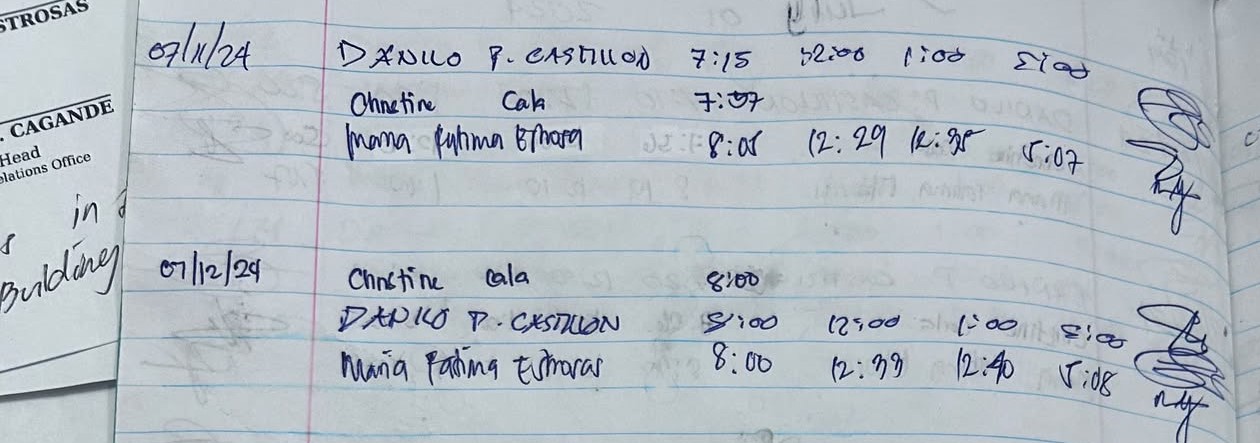 STROSAS
. CAGANDE
Head
elations Office
in
Building
07/11/24 DANILO P. CASTILLON 7:15 12:00 1:00 5:00
Christine Cala 7:57
Maria Fatima Estrora 8:05 12:29 12:35 5:07
07/12/24 Christine Cala 8:00
DANILO P. CASTILLON 8:00 12:00 1:00 5:00
Maria Fatima Estroras 8:00 12:33 12:40 5:08